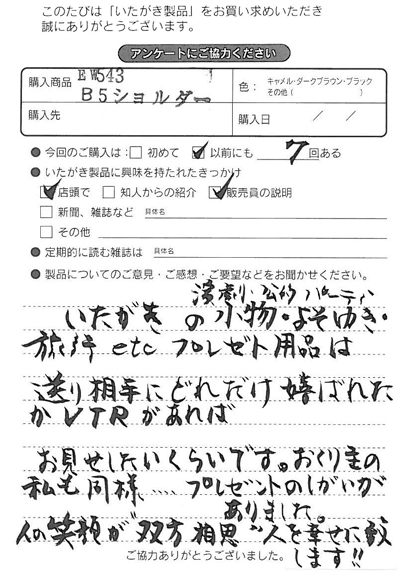 このたびは「いたがき製品」をお買い求めいただき
誠にありがとうございます。
アンケートにご協力ください
購入商品 EW543
B5ショルダー
色： キャメル・ダークブラウン・ブラック
その他（　　　　）
購入先
購入日　／　／
● 今回のご購入は：□ 初めて ☑ 以前にも 7 回ある
● いたがき製品に興味を持たれたきっかけ
☑ 店頭で □ 知人からの紹介 ☑ 販売員の説明
□ 新聞、雑誌など 具体名
□ その他
● 定期的に読む雑誌は 具体名
● 製品についてのご意見・ご感想・ご要望などをお聞かせください。
演劇い 公的 パーティ
いたがき の小物・よそゆき・
旅行 etc プレゼト用品は
送り相手にどれだけ嬉ばれた
かVTRがあれば
お見せしたいくらいです。おくり主の
私も同様.... プレゼントのしがいが
ありました。
人の笑顔が"双方 相思" 人を幸せに致
します!!
ご協力ありがとうございました。